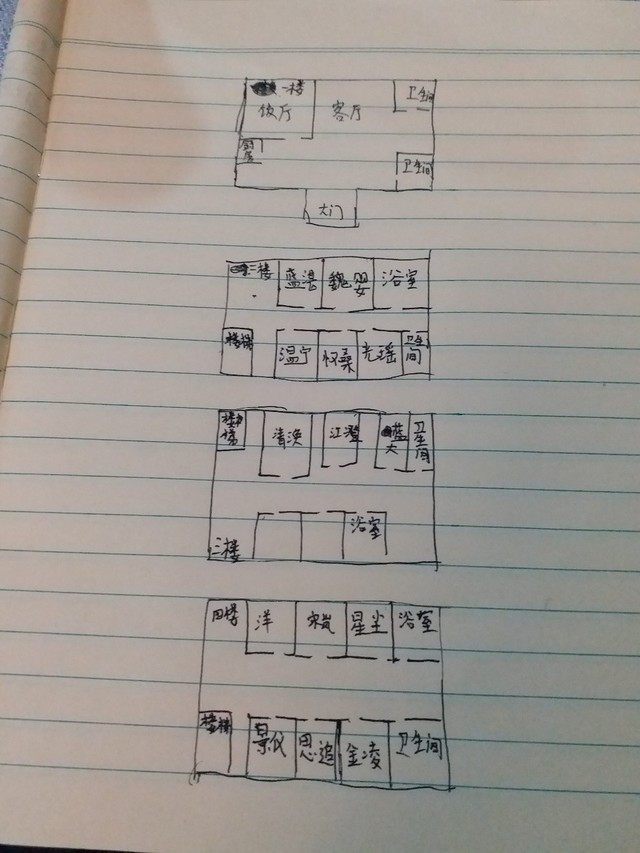 一楼
饭厅 客厅 卫生间
厨房
卫生间
大门
二楼 蓝湛 魏婴 浴室
楼梯 温宁 怀桑 光瑶 卫生间
楼梯 清涣 江澄 蓝大 卫生间
浴室
三楼
四楼 洋 宋岚 星尘 浴室
楼梯 景仪 思追 金凌 卫生间